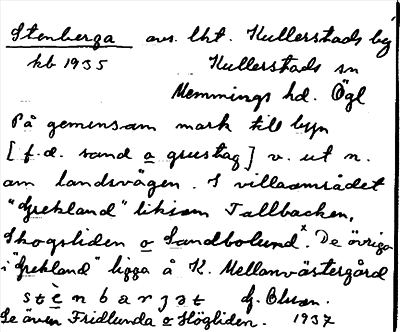 Stenberga avs. lht. Kullerstads by
kb 1935 Kullerstads sn
Memmings hd. Ögl
På gemensam mark till byn
[f.d. sand o grustag] v. ut n.
om landsvägen. I villaområdet
"Grekland" liksom Tallbacken,
Skogsliden o Sandbolund x. De övriga
i "Grekland" ligga å K. Mellanvästergård
stènbarjat G.
Se även Fridlunda o Högliden. 1937